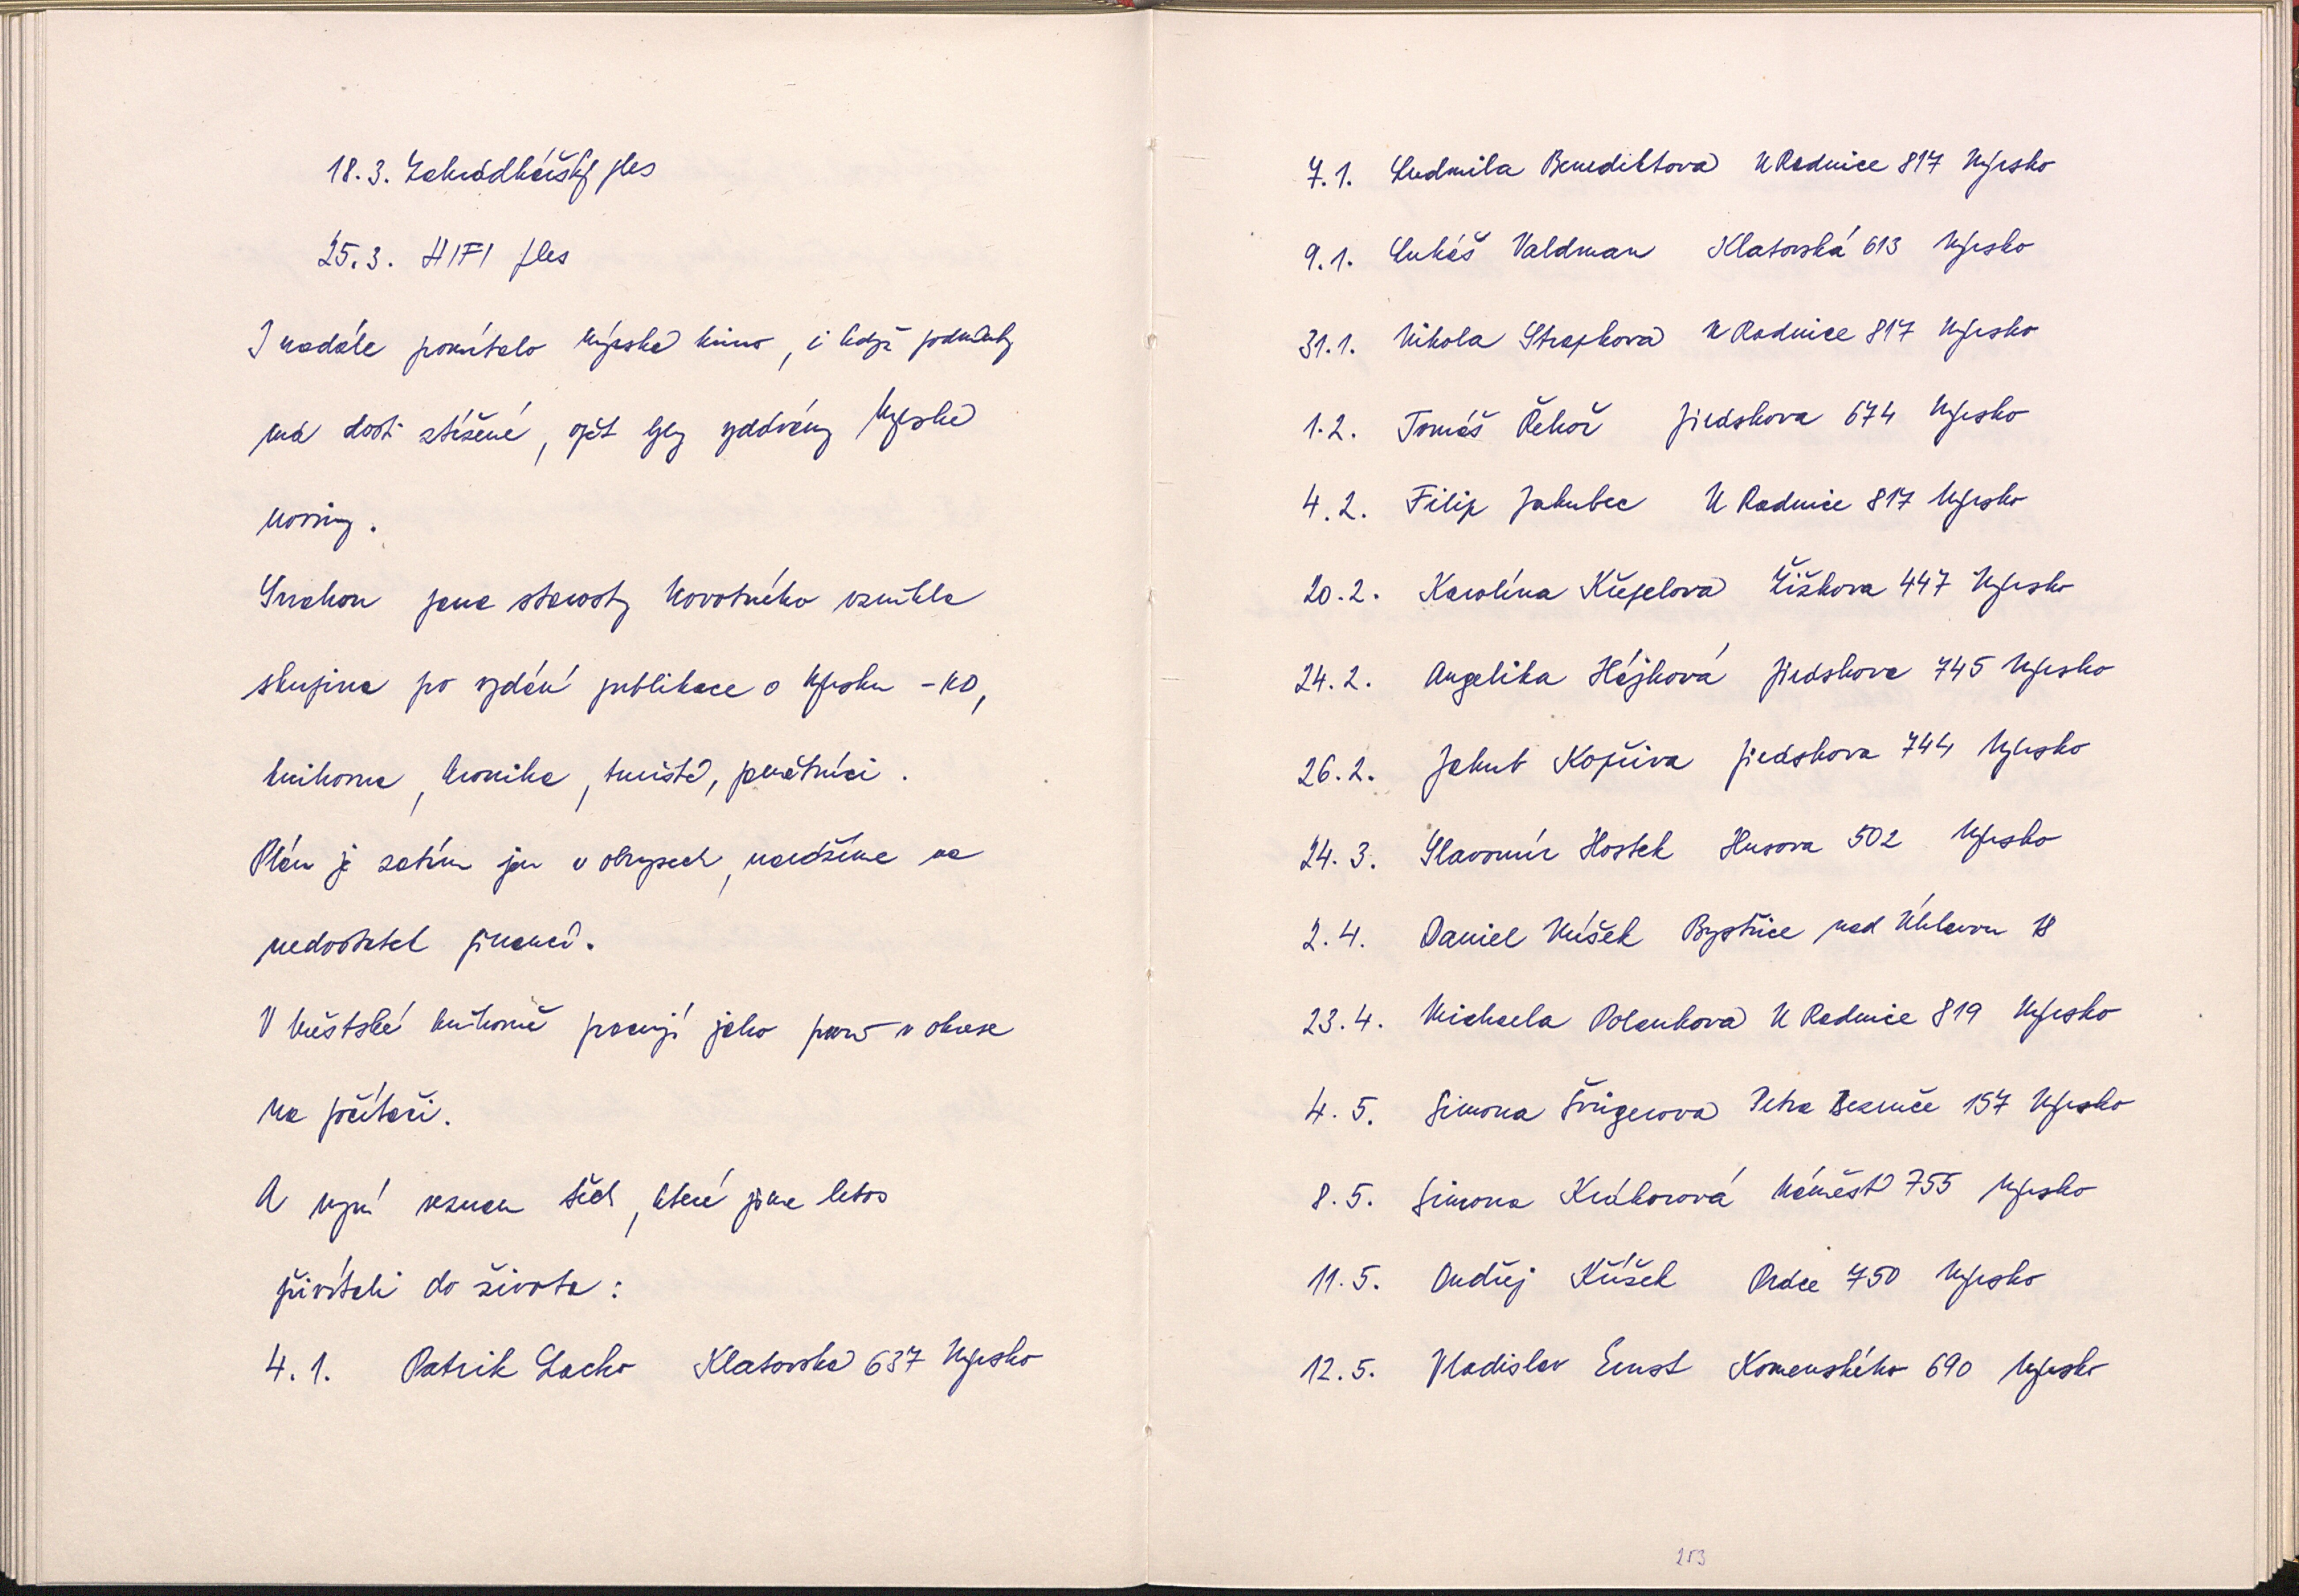 18.3. Zahrádkářský ples
25.3. HIFI ples
I nadále promítalo Nýrské kino, i když podmínky
má dosti ztížené, opět byly vydávány Nýrské
noviny.
Snahou pana starosty Novotného vznikla
skupina po vydání publikace o Nýrsku - KD,
knihovna, kronika, turisté, pamětníci.
Plán je zatím jen v obrysech, narážíme na
nedostatek financí.
V Městské knihovně pracují jako první v okrese
na počítači.
A nyní seznam těch, které jsme letos
přivítali do života:
4.1. Patrik Lacko Klatovská 637 Nýrsko
7.1. Ludmila Benediktová U Radnice 817 Nýrsko
9.1. Lukáš Valdman Klatovská 613 Nýrsko
31.1. Nikola Strapková U Radnice 817 Nýrsko
1.2. Tomáš Řehoř Jiráskova 674 Nýrsko
4.2. Filip Jakubec U Radnice 817 Nýrsko
20.2. Karolína Křepelová Žižkova 447 Nýrsko
24.2. Angelika Hájková Jiráskova 745 Nýrsko
26.2. Jakub Kopřiva Jiráskova 744 Nýrsko
24.3. Slavomír Hostek Husova 502 Nýrsko
2.4. Daniel Míšek Bystřice nad Úhlavou 18
23.4. Michaela Polanková U Radnice 819 Nýrsko
4.5. Simona Petra Bezruče 157 Nýrsko
8.5. Simona Kráhorová Náměstí 755 Nýrsko
11.5. Ondřej Křížek Práce 750 Nýrsko
12.5. Vladislav Ernst Komenského 690 Nýrsko
253